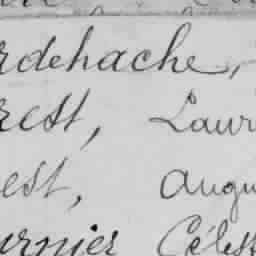 rdehache,
rest, Laur
est, Augu
urnier Célest